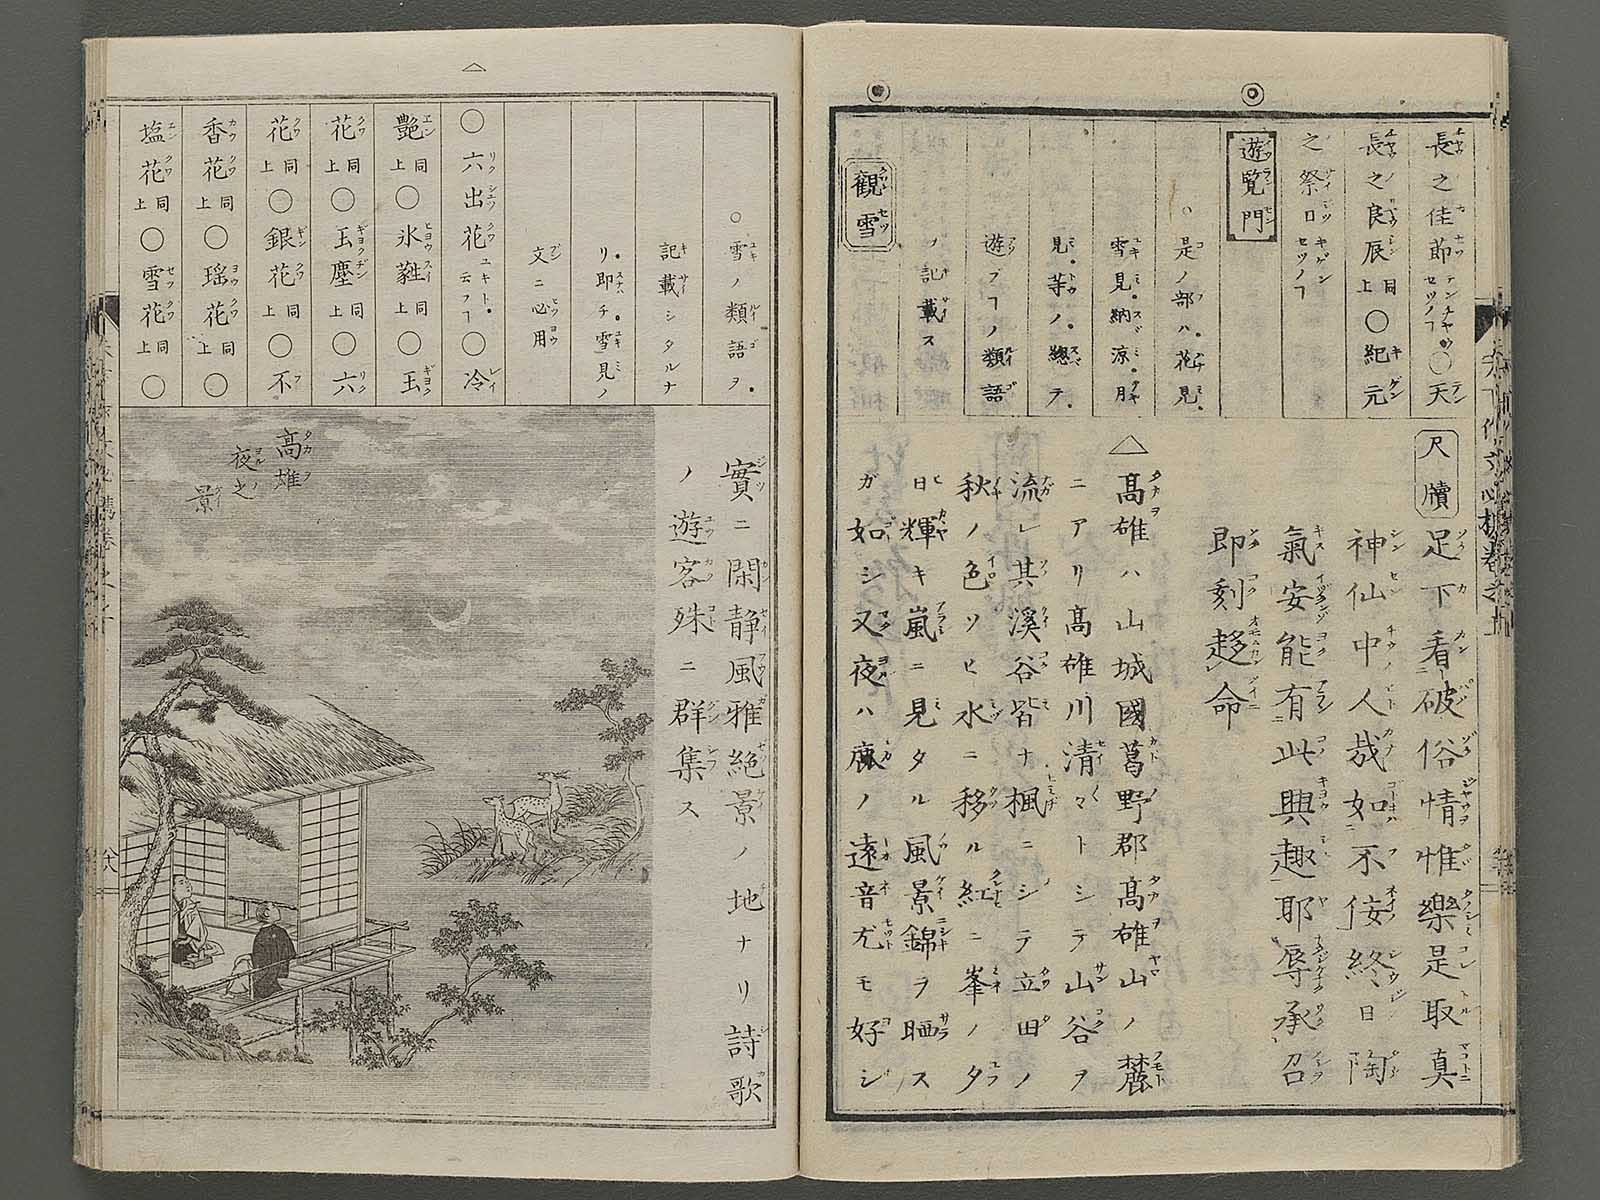 長之佳節セツノヿ〇天
長之良辰同上〇紀元
之祭日セツノヿ
遊覧門
〇是ノ部ハ花見
雪見納涼月
見等ノ總テ
遊ブヿノ類語
ノ記載ス
觀雪
尺牘
足下看破俗情惟樂是取真
神仙中人哉如不侫終日陶
氣安能有此興趣耶辱承召
即刻趍命
△
高雄ハ山城國葛野郡高雄山ノ麓
ニアリ高雄川清マトシテ山谷ヲ
流レ其溪谷皆ナ楓ニシテ立田ノ
秋ノ色ソヒ水ニ移ル紅ニ峯ノタ
日輝キ嵐ニ見タル風景錦ヲ晒ス
ガ如シ又夜ハ鹿ノ遠音尤モ好シ
〇雪ノ類語ヲ
記載シタルナ
リ即チ雪見ノ
文ニ必用
〇六出花ユキト云フヿ〇冷
艶同上〇氷蕤同上〇玉
花同上〇玉塵同上〇六
花同上〇銀花同上〇不
香花同上〇瑶花同上〇
塩花同上〇雪花同上〇
實ニ閑静風雅絶景ノ地ナリ詩歌
ノ遊客殊ニ群集ス
高雄
夜之
景